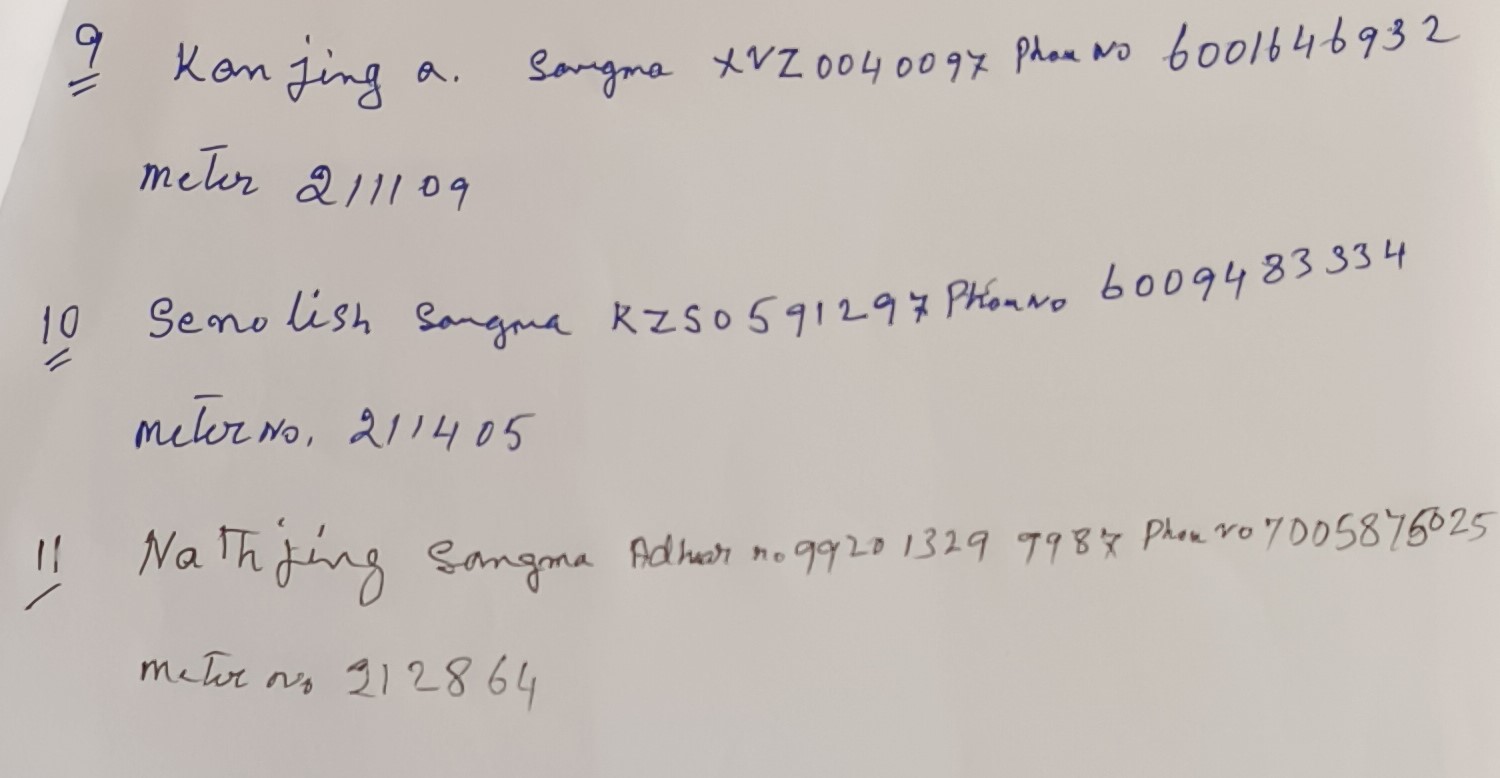 9 Konjing a. Sangma XVZ0040097 Phone No 6001646932
meter 211109
10 Senolish Sangma KZS0591297 Phone No 6009483334
meter No. 211405
11 NaThjing Sangma Adhar no 9920 1329 9987 Phone No 7005875025
meter no 212864